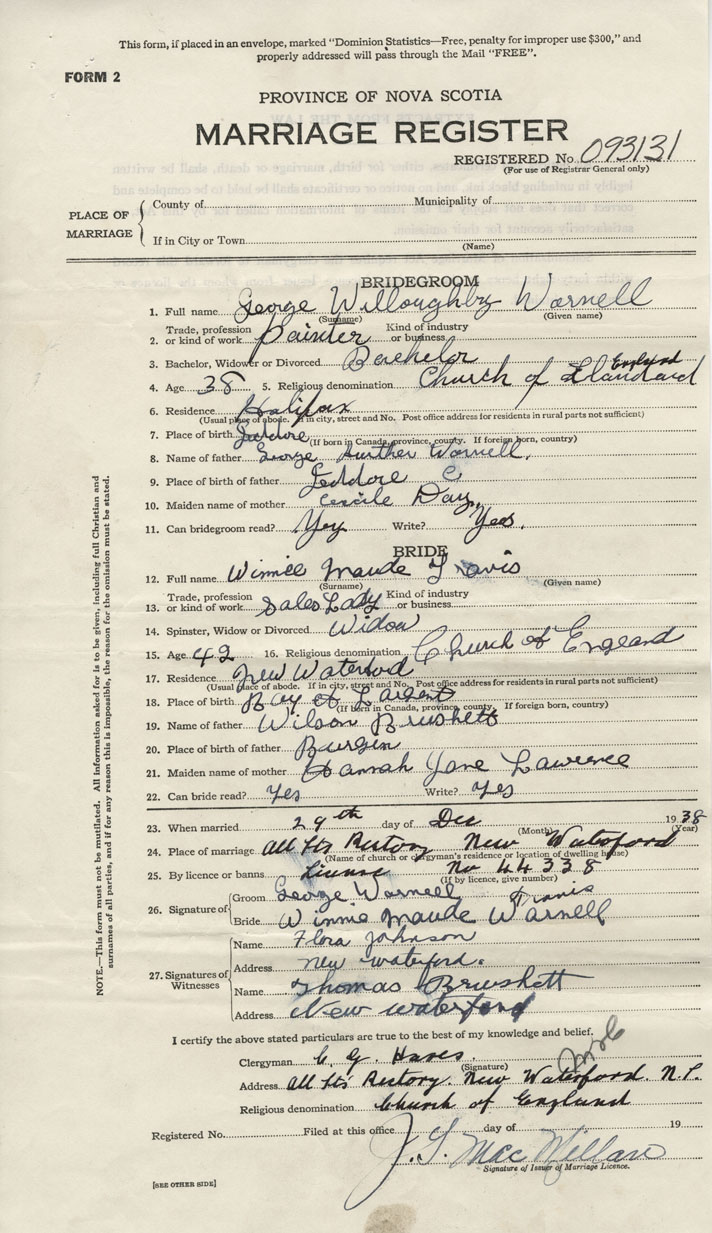 This form, if placed in an envelope, marked "Dominion Statistics—Free, penalty for improper use $300," and
properly addressed will pass through the Mail "FREE".
FORM 2
PROVINCE OF NOVA SCOTIA
MARRIAGE REGISTER
REGISTERED No. 093131
(For use of Registrar General only)
PLACE OF MARRIAGE
County of Municipality of
If in City or Town
(Name)
BRIDEGROOM
1. Full name George Willoughby Warnell
(Surname) (Given name)
2. Trade, profession or kind of work Painter Kind of industry or business
3. Bachelor, Widower or Divorced Bachelor
4. Age 38 5. Religious denomination Church of England
6. Residence Halifax
(Usual place of abode. If in city, street and No. Post office address for residents in rural parts not sufficient)
7. Place of birth Jeddore
(If born in Canada, province, county. If foreign born, country)
8. Name of father George Warnell
9. Place of birth of father Jeddore
10. Maiden name of mother Cecile Day
11. Can bridegroom read? Yes Write? Yes.
BRIDE
12. Full name Winnie Maude Travis
(Surname) (Given name)
13. Trade, profession or kind of work Sales Lady Kind of industry or business
14. Spinster, Widow or Divorced Widow
15. Age 42 16. Religious denomination Church of England
17. Residence New Waterford
(Usual place of abode. If in city, street and No. Post office address for residents in rural parts not sufficient)
18. Place of birth Bay of Largent
(If born in Canada, province, county. If foreign born, country)
19. Name of father Wilson Brushett
20. Place of birth of father Burgen
21. Maiden name of mother Hannah Jane Lawrence
22. Can bride read? Yes Write? Yes
23. When married 29th day of Dec 1938
(Month) (Year)
24. Place of marriage All Sts Rectory New Waterford
(Name of church or clergyman's residence or location of dwelling house)
25. By licence or banns License No 44338
(If by licence, give number)
26. Signature of
Groom George Warnell
Travis
Bride Winnie Maude Warnell
27. Signatures of Witnesses
Name Flora Johnson
Address New Waterford.
Name Thomas Brushett
Address New Waterford
I certify the above stated particulars are true to the best of my knowledge and belief.
Clergyman
(Signature)
Address All Sts Rectory. New Waterford. N.S.
Religious denomination Church of England
Registered No. Filed at this office day of 19
Signature of Issuer of Marriage Licence.
[SEE OTHER SIDE]
NOTE.—This form must not be mutilated. All information asked for is to be given, including full Christian and
surnames of all parties, and if for any reason this is impossible, the reason for the omission must be stated.